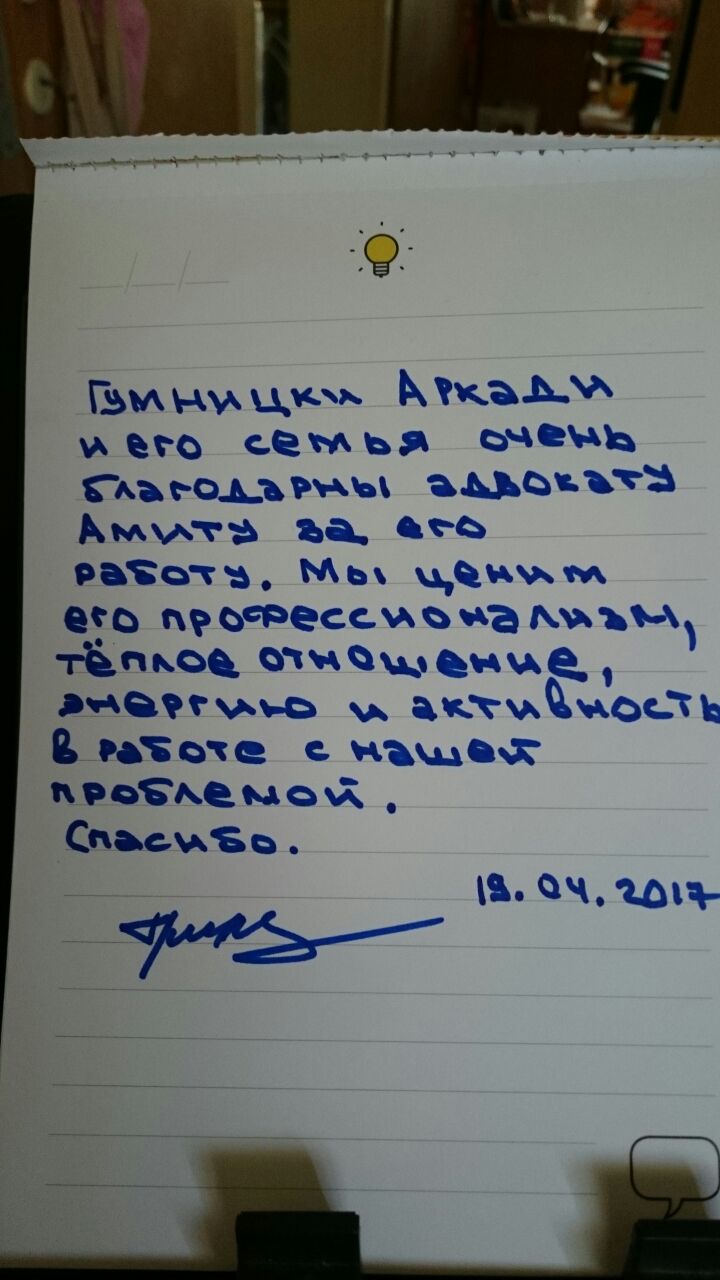 Гумницки Аркади
и его семья очень
благодарны адвокату
Амиту за его
работу. Мы ценим
его профессионализм,
тёплое отношение,
энергию и активность
в работе с нашей
проблемой.
Спасибо.
19.04.2017